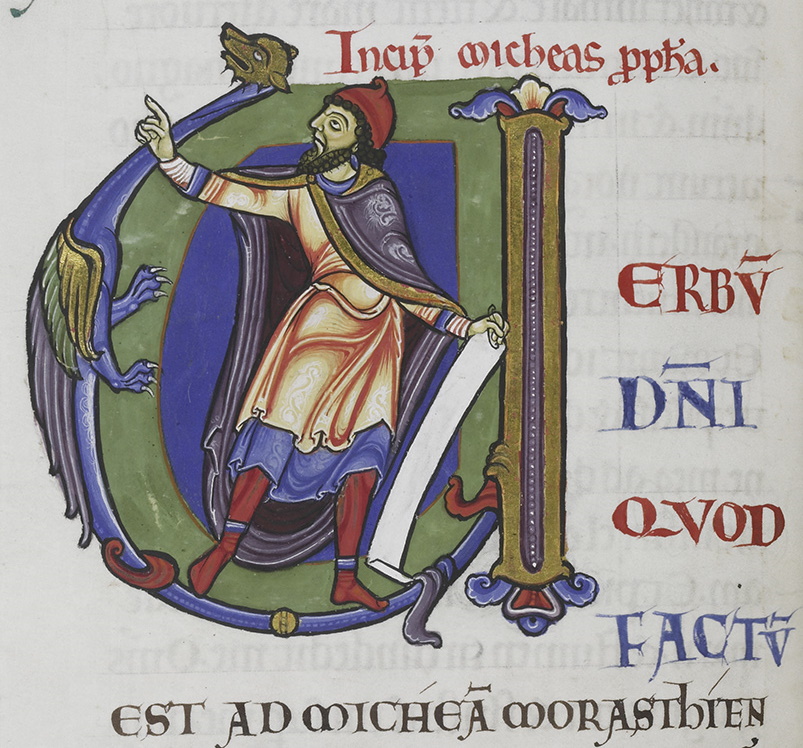 Incip̄ micheas ꝓpħa.
ERBV̄
DN̄I
QVOD
FACTV̄
EST AD MICHEĀ MORASTHIEN